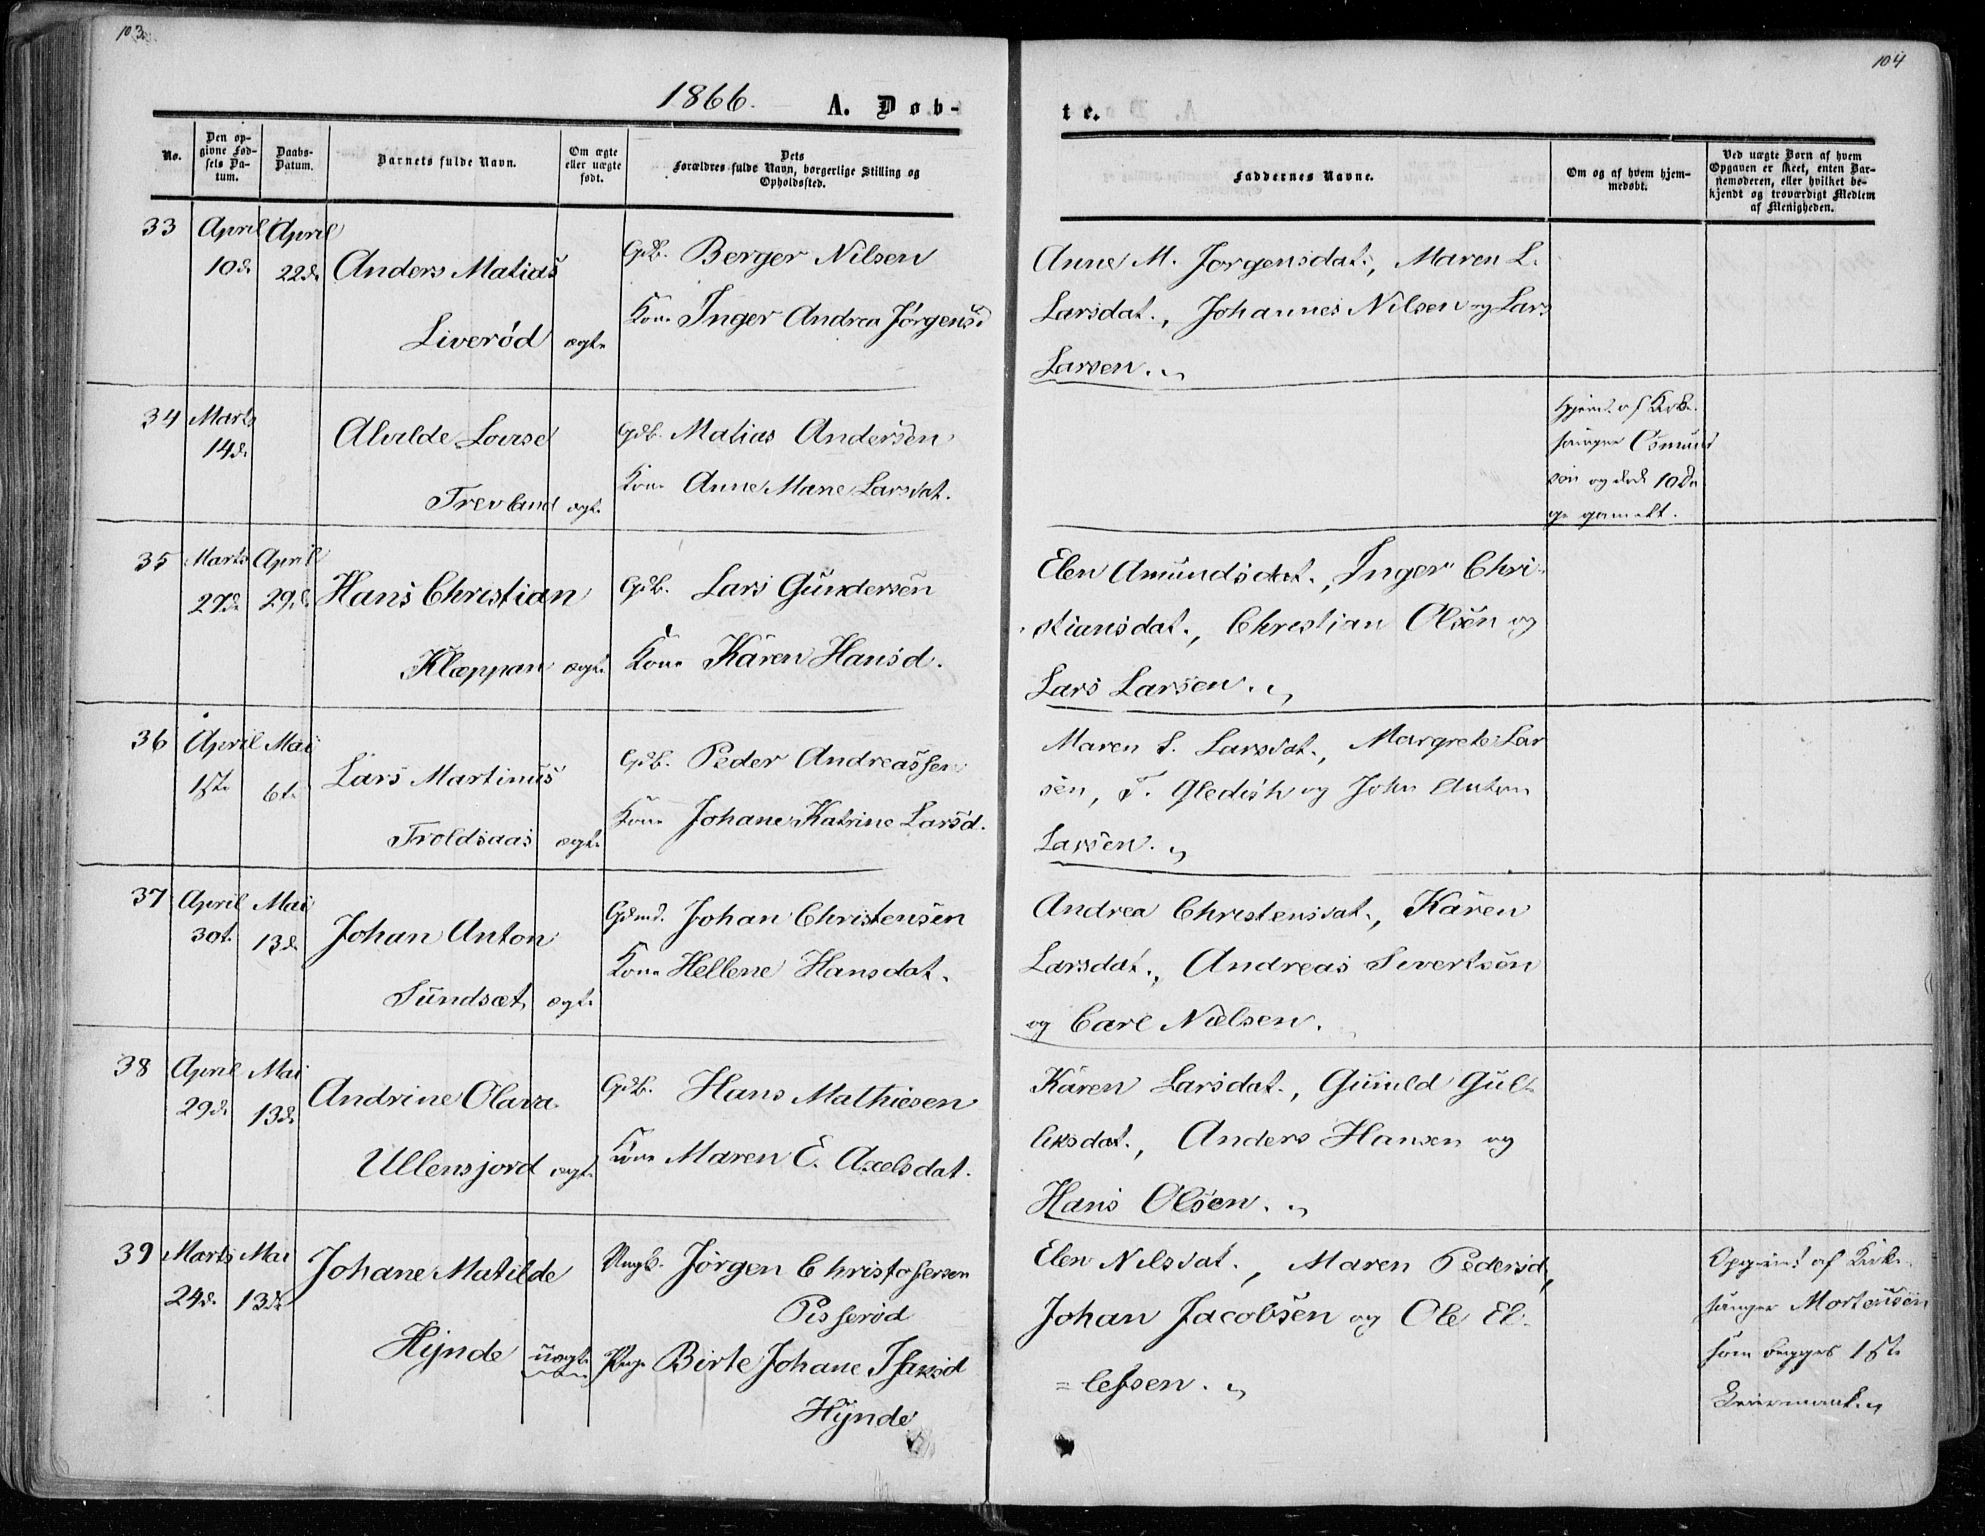 103.
104
1866. A. Døb-
te.
No.
Den op-
givne Fød-
sels Da-
tum.
Daabs-
Datum.
Barnets fulde Navn.
Om ægte
eller uægte
født.
Dets
Forældres fulde Navn, borgerlige Stilling og
Opholdssted.
Faddernes Navne.
Om og af hvem hjem-
medøbt.
Ved uægte Børn af hvem
Opgaven er skeet, enten Bar-
nemoderen, eller hvilket be-
kjendt og troværdigt Medlem
af Menigheden.
33 April April
10d. 22d. Anders Matias
Liverød ægt.
Gdb. Berger Nilsen
Kone Inger Andrea Jørgensd
Anne M. Jørgensdat., Maren L.
Larsdat., Johannes Nilsen og Lars
Larsen.
34 Marts
14d. Alvilde Lovise
Trevland ægt.
Gdb. Matias Andersen
Kone Anne Marie Larsdat.
Hjemd. af Kirke-
sanger Osmund
sen og død 10 Da
ge gamelt.
35 Marts April
27d. 29d. Hans Christian
Klæppan ægt.
Gdb. Lars Gundersen
Kone Karen Hansd.
Elen Amundsdat., Inger Chri-
stiansdat., Christian Olsen og
Lars Larsen.
36 April Mai
1st. 6t. Lars Martinus
Troldsaas ægt.
Gdb. Peder Andreassen
Kone Johane Katrine Larsd.
Maren S. Larsdat., Margrete Lar
sen, T. Gledish og John Anton
Larsen.
37 April Mai
30t. 13d. Johan Anton
Sundsæt ægt.
Gdmd. Johan Christensen
Kone Hellene Hansdat.
Andrea Christensdat., Karen
Larsdat., Andreas Sivertsen
og Carl Nielsen.
38 April Mai
29d. 13d. Andrine Olava
Ullensjord ægt.
Gdb. Hans Mathiesen
Kone Maren E. Axelsdat.
Karen Larsdat., Gunild Gul-
liksdat., Anders Hansen og
Hans Olsen.
39 Marts Mai
24d. 13d. Johane Matilde
Hynde uægt.
Ungk. Jørgen Christofersen
Pisserød
Pige Birte Johane Isaksd
Hynde
Elen Nilsdat., Maren Pedersd,
Johan Jacobsen og Ole El-
=lefsen.
Opgivet af Kirke-
sanger Mortensen
som begges 1ste
Leiermaal.